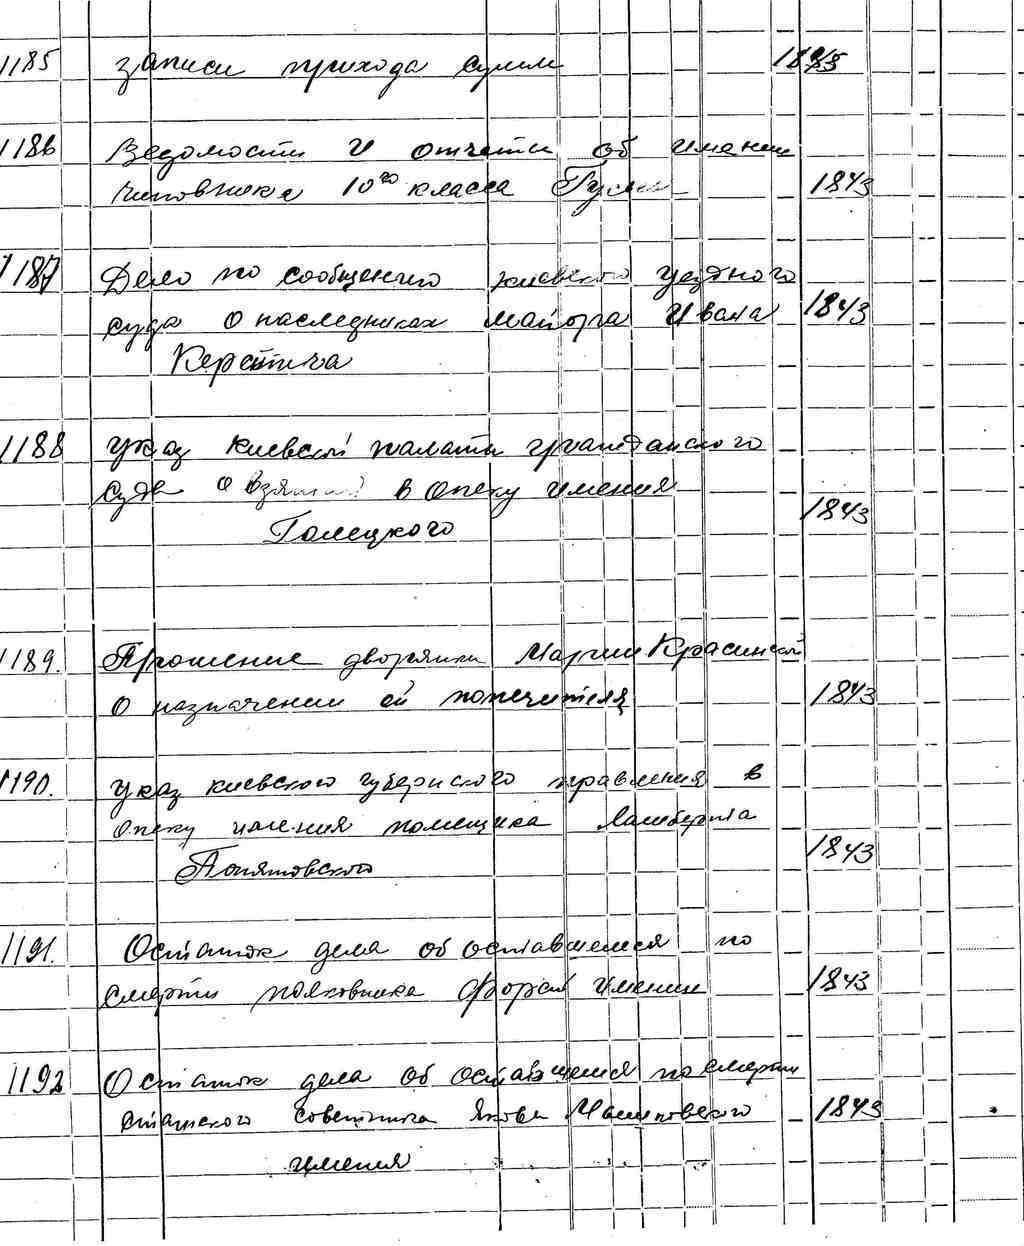 1185 записи прихода сумм 1843
1186 Ведомости и отчеты об имении
чиновника 10го класса 1843
1187 Дело по сообщению киевского уездного
суда о наследниках майора Ивана 1843
Керстича
1188 Указ киевской палаты гражданского
суда о взятии в опеку имения
Голецкого 1843
1189. Прошение дворянки Марии Красинской
о назначении ей попечителя 1843
1190. Указ киевского губернского правления в
опеку имения помещика Ламберта
Понятовского 1843
1191. Остаток дела об оставшемся по
смерти полковника имении 1843
1192 Остаток дела об оставшемся по смерти
статского советника Якова 1843
имения